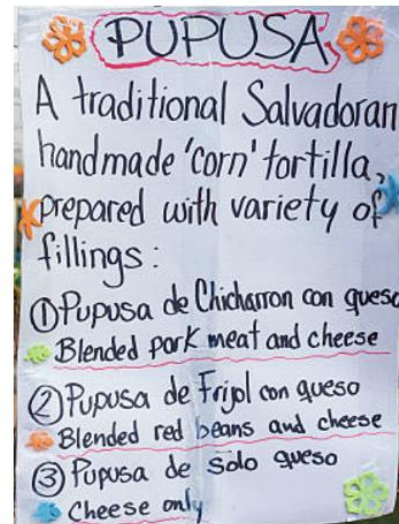 PUPUSA
A traditional Salvadoran
handmade 'corn' tortilla,
prepared with variety of
fillings:
① Pupusa de Chicharron con queso
Blended pork meat and cheese
② Pupusa de Frijol con queso
Blended red beans and cheese
③ Pupusa de solo queso
Cheese only